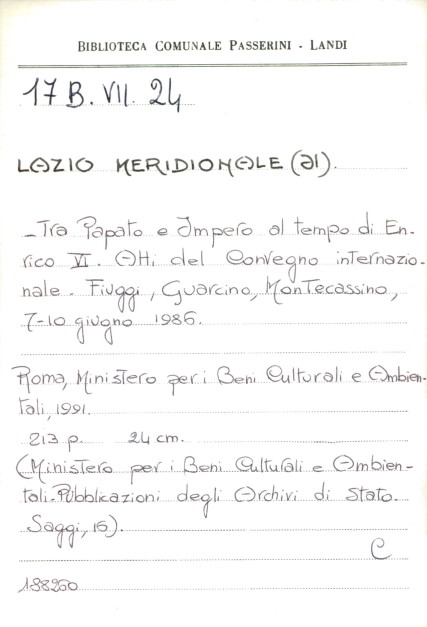 BIBLIOTECA COMUNALE PASSERINI - LANDI
17 B. VII. 24
LAZIO MERIDIONALE (Il).
- Tra Papato e Impero al tempo di En-
rico VI. Atti del Convegno internazio-
nale. Fiuggi, Guarcino, Montecassino,
7-10 giugno 1986.
Roma, Ministero per i Beni Culturali e Ambien-
tali, 1991.
213 p. 24 cm.
(Ministero per i Beni Culturali e Ambien-
tali. Pubblicazioni degli Archivi di Stato.
Saggi, 16).
C
188260